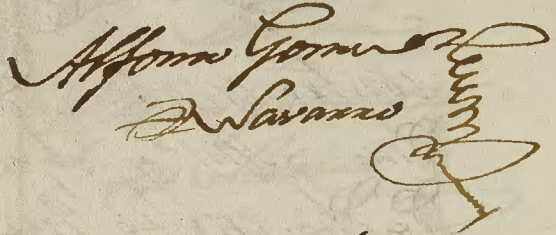 Alfonso Gomez
Navarro